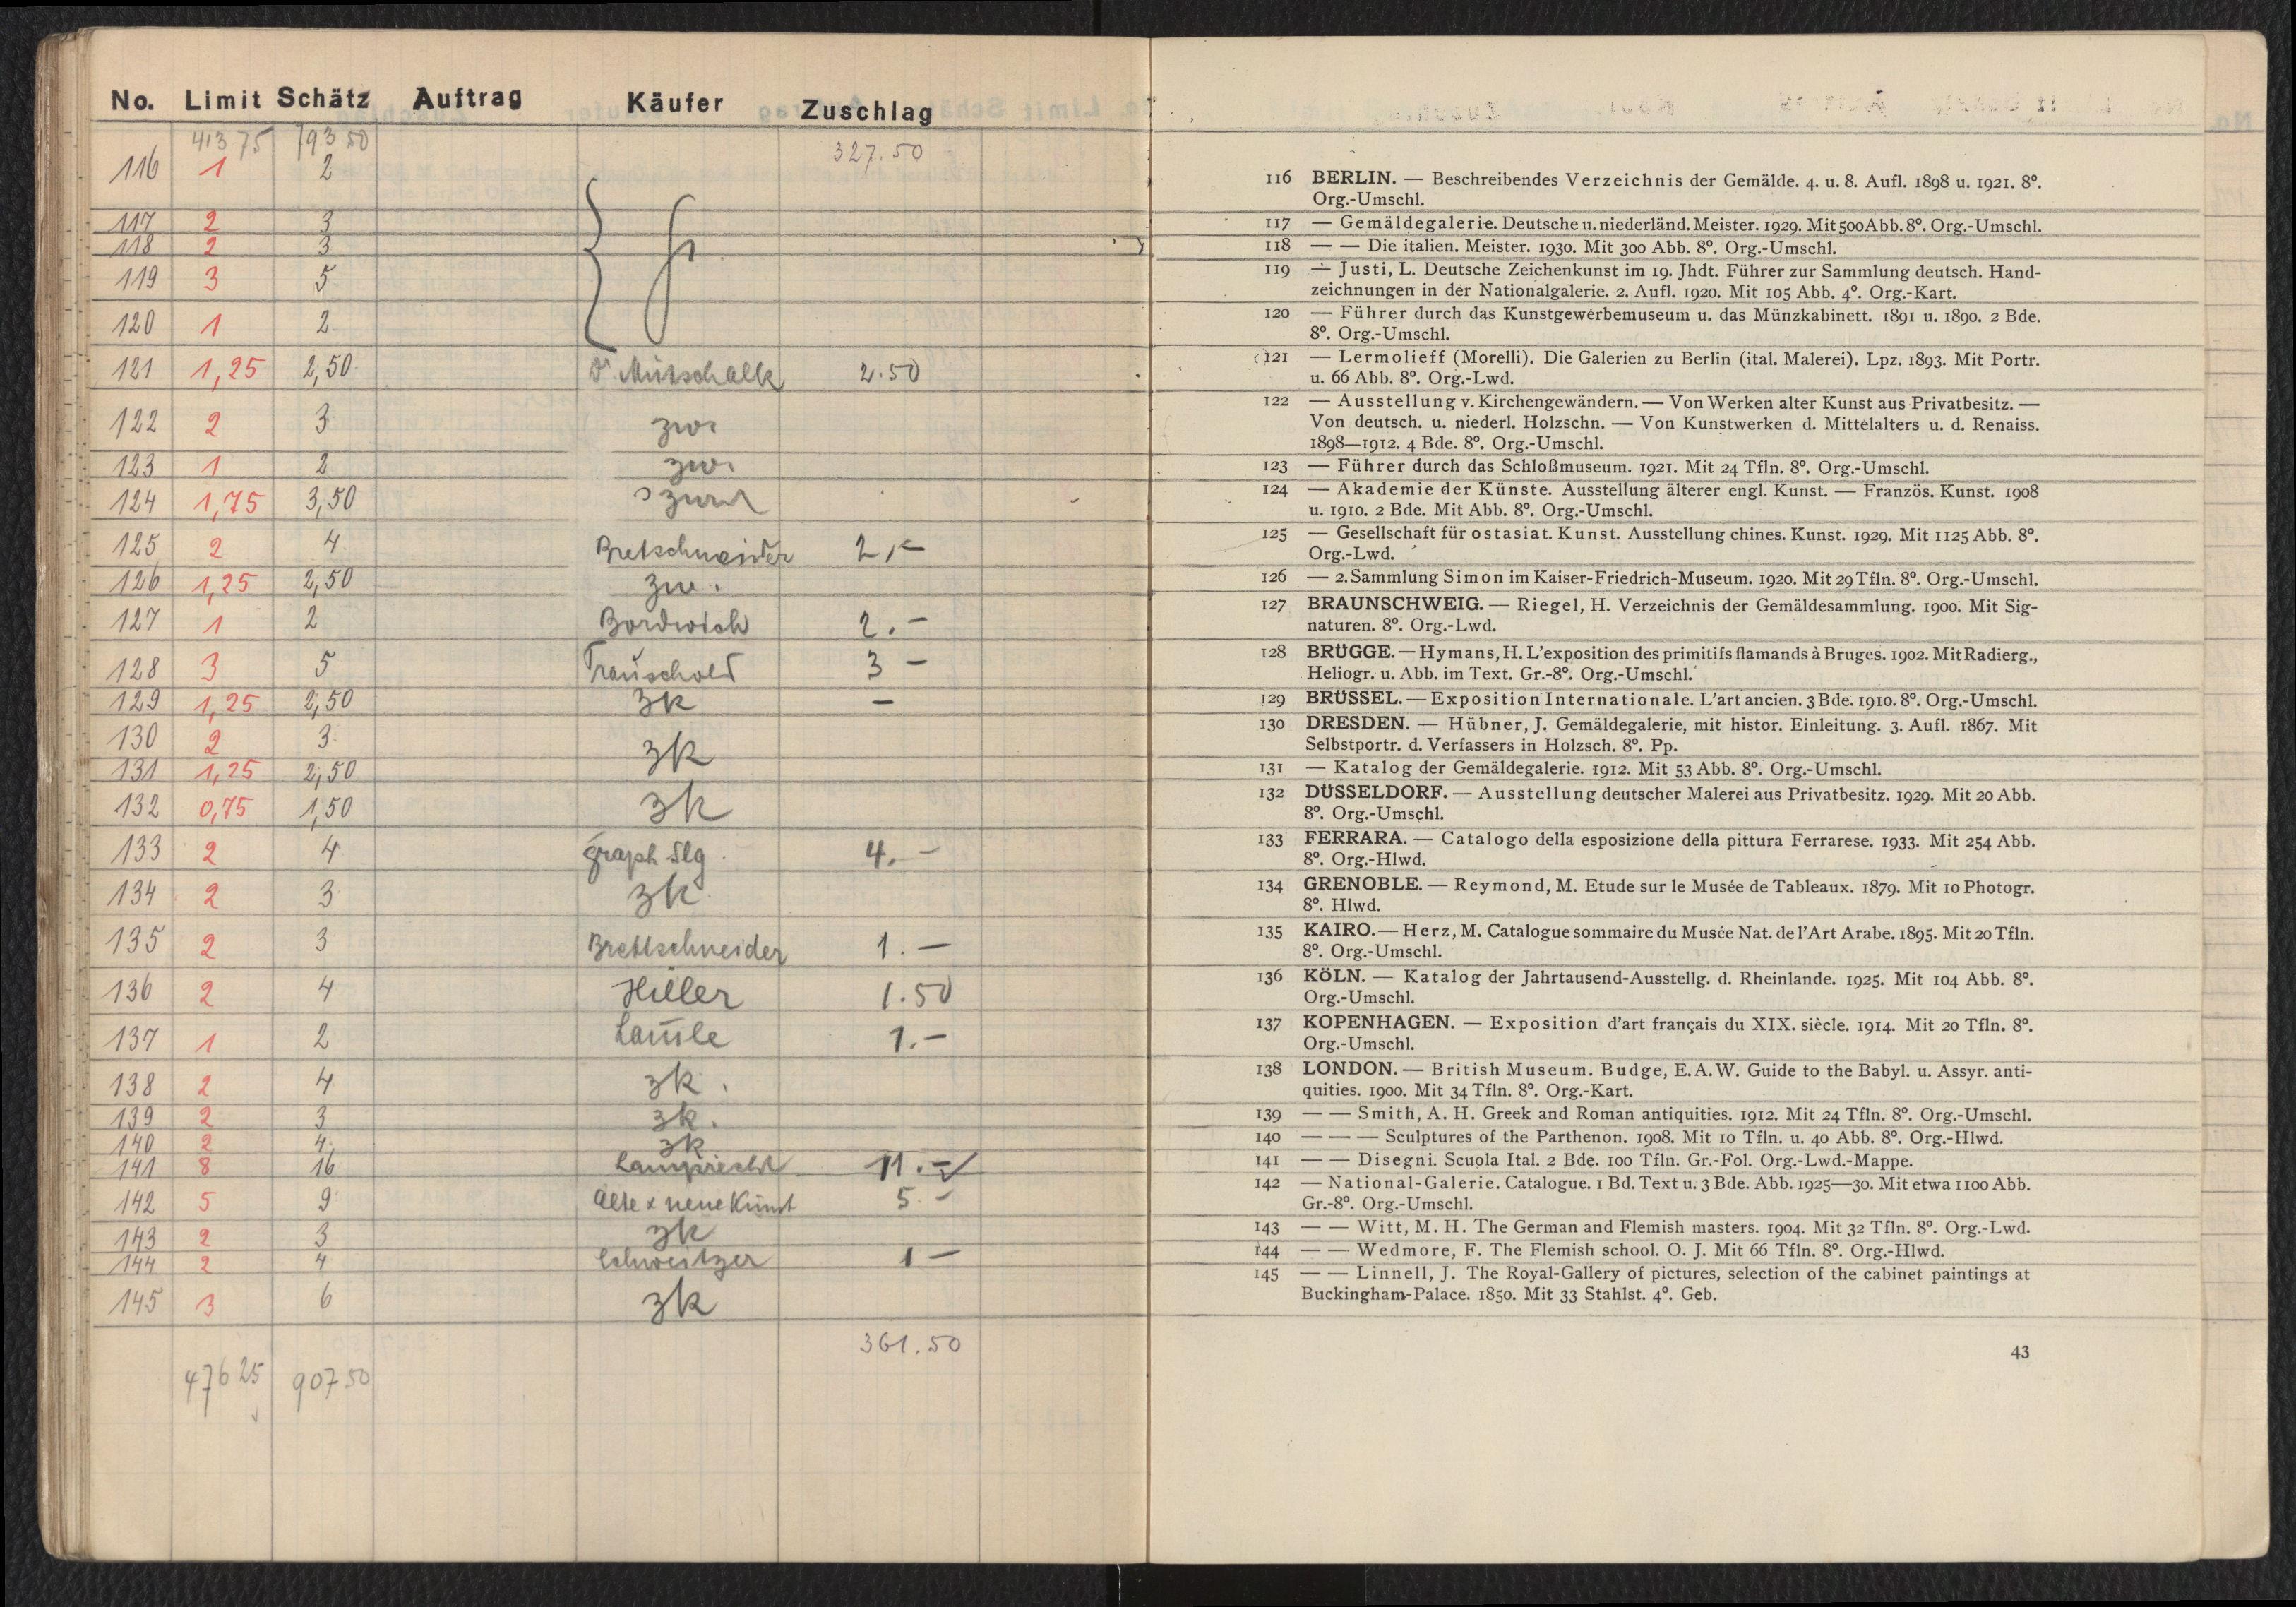 No. Limit Schätz Auftrag Käufer Zuschlag
413 75 793 50 327.50
116 1 2
117 2 3
118 2 3
119 3 5
120 1 2
121 1,25 2,50 Dr Mutschalk 2.50
122 2 3 zw.
123 1 2 zw.
124 1,75 3,50 zurü
125 2 4 Bretschneider 2,-
126 1,25 2,50 zw.
127 1 2 Bordwich 2.-
128 3 5 Trauschold 3 -
129 1,25 2,50 zk -
130 2 3 zk
131 1,25 2,50
132 0,75 1,50 zk
133 2 4 graph Slg 4.-
134 2 3 zk
135 2 3 Brettschneider 1.-
136 2 4 Hiller 1.50
137 1 2 1.-
138 2 4 zk.
139 2 3 zk.
140 2 4 zk
141 8 16 Lamprecht 11.-
142 5 9 Alte & neue Kunst 5.-
143 2 3 zk
144 2 4 Schweitzer 1 -
145 3 6 zk
361.50
476 25 907 50
116 BERLIN. — Beschreibendes Verzeichnis der Gemälde. 4. u. 8. Aufl. 1898 u. 1921. 8°.
Org.-Umschl.
117 — Gemäldegalerie. Deutsche u. niederländ. Meister. 1929. Mit 500 Abb. 8°. Org.-Umschl.
118 — — Die italien. Meister. 1930. Mit 300 Abb. 8°. Org.-Umschl.
119 — Justi, L. Deutsche Zeichenkunst im 19. Jhdt. Führer zur Sammlung deutsch. Hand-
zeichnungen in der Nationalgalerie. 2. Aufl. 1920. Mit 105 Abb. 4°. Org.-Kart.
120 — Führer durch das Kunstgewerbemuseum u. das Münzkabinett. 1891 u. 1890. 2 Bde.
8°. Org.-Umschl.
121 — Lermolieff (Morelli). Die Galerien zu Berlin (ital. Malerei). Lpz. 1893. Mit Portr.
u. 66 Abb. 8°. Org.-Lwd.
122 — Ausstellung v. Kirchengewändern. — Von Werken alter Kunst aus Privatbesitz. —
Von deutsch. u. niederl. Holzschn. — Von Kunstwerken d. Mittelalters u. d. Renaiss.
1898—1912. 4 Bde. 8°. Org.-Umschl.
123 — Führer durch das Schloßmuseum. 1921. Mit 24 Tfln. 8°. Org.-Umschl.
124 — Akademie der Künste. Ausstellung älterer engl. Kunst. — Französ. Kunst. 1908
u. 1910. 2 Bde. Mit Abb. 8°. Org.-Umschl.
125 — Gesellschaft für ostasiat. Kunst. Ausstellung chines. Kunst. 1929. Mit 1125 Abb. 8°.
Org.-Lwd.
126 — 2. Sammlung Simon im Kaiser-Friedrich-Museum. 1920. Mit 29 Tfln. 8°. Org.-Umschl.
127 BRAUNSCHWEIG. — Riegel, H. Verzeichnis der Gemäldesammlung. 1900. Mit Sig-
naturen. 8°. Org.-Lwd.
128 BRÜGGE. — Hymans, H. L'exposition des primitifs flamands à Bruges. 1902. Mit Radierg.,
Heliogr. u. Abb. im Text. Gr.-8°. Org.-Umschl.
129 BRÜSSEL. — Exposition Internationale. L'art ancien. 3 Bde. 1910. 8°. Org.-Umschl.
130 DRESDEN. — Hübner, J. Gemäldegalerie, mit histor. Einleitung. 3. Aufl. 1867. Mit
Selbstportr. d. Verfassers in Holzsch. 8°. Pp.
131 — Katalog der Gemäldegalerie. 1912. Mit 53 Abb. 8°. Org.-Umschl.
132 DÜSSELDORF. — Ausstellung deutscher Malerei aus Privatbesitz. 1929. Mit 20 Abb.
8°. Org.-Umschl.
133 FERRARA. — Catalogo della esposizione della pittura Ferrarese. 1933. Mit 254 Abb.
8°. Org.-Hlwd.
134 GRENOBLE. — Reymond, M. Etude sur le Musée de Tableaux. 1879. Mit 10 Photogr.
8°. Hlwd.
135 KAIRO. — Herz, M. Catalogue sommaire du Musée Nat. de l'Art Arabe. 1895. Mit 20 Tfln.
8°. Org.-Umschl.
136 KÖLN. — Katalog der Jahrtausend-Ausstellg. d. Rheinlande. 1925. Mit 104 Abb. 8°.
Org.-Umschl.
137 KOPENHAGEN. — Exposition d'art français du XIX. siècle. 1914. Mit 20 Tfln. 8°.
Org.-Umschl.
138 LONDON. — British Museum. Budge, E. A. W. Guide to the Babyl. u. Assyr. anti-
quities. 1900. Mit 34 Tfln. 8°. Org.-Kart.
139 — — Smith, A. H. Greek and Roman antiquities. 1912. Mit 24 Tfln. 8°. Org.-Umschl.
140 — — — Sculptures of the Parthenon. 1908. Mit 10 Tfln. u. 40 Abb. 8°. Org.-Hlwd.
141 — — Disegni. Scuola Ital. 2 Bde. 100 Tfln. Gr.-Fol. Org.-Lwd.-Mappe.
142 — National-Galerie. Catalogue. 1 Bd. Text u. 3 Bde. Abb. 1925—30. Mit etwa 1100 Abb.
Gr.-8°. Org.-Umschl.
143 — — Witt, M. H. The German and Flemish masters. 1904. Mit 32 Tfln. 8°. Org.-Lwd.
144 — — Wedmore, F. The Flemish school. O. J. Mit 66 Tfln. 8°. Org.-Hlwd.
145 — — Linnell, J. The Royal-Gallery of pictures, selection of the cabinet paintings at
Buckingham-Palace. 1850. Mit 33 Stahlst. 4°. Geb.
43